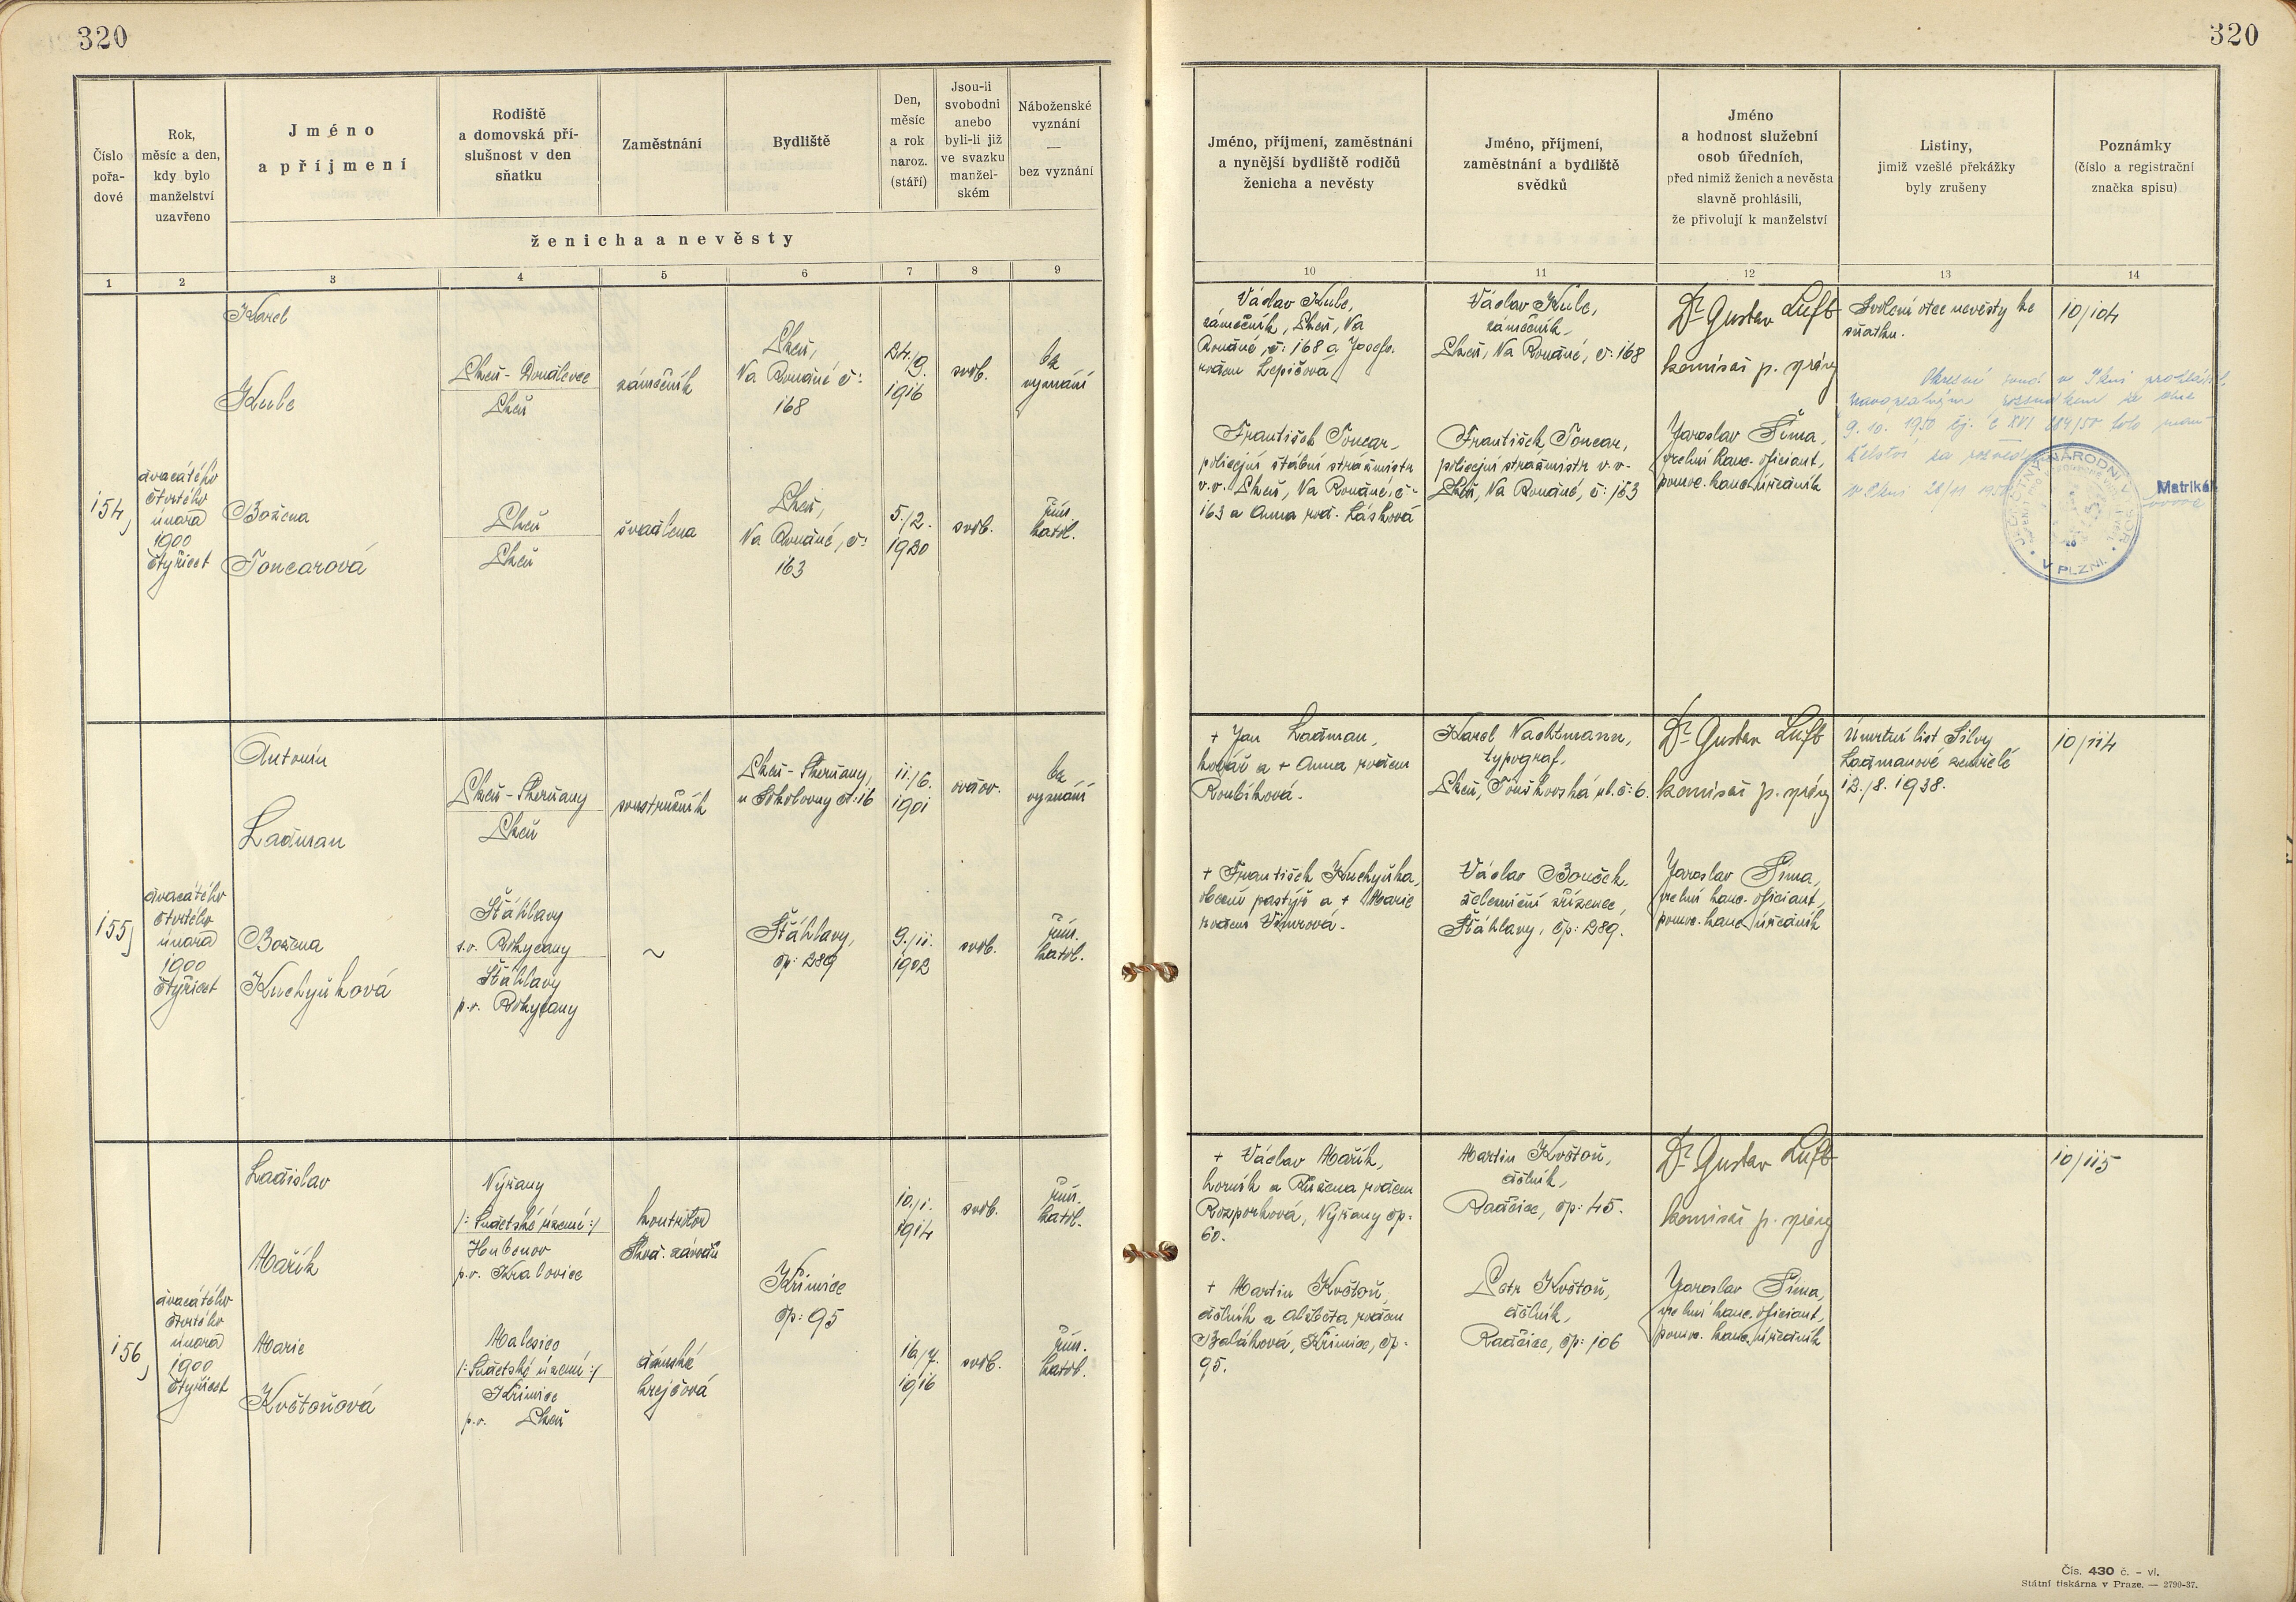 320
320
Číslo
pořa-
dové
Rok,
měsíc a den,
kdy bylo
manželství
uzavřeno
Jméno
a příjmení
Rodiště
a domovská pří-
slušnost v den
sňatku
Zaměstnání
Bydliště
Den,
měsíc
a rok
naroz.
(stáří)
Jsou-li
svobodni
anebo
byli-li již
ve svazku
manžel-
ském
Náboženské
vyznání
—
bez vyznání
ženicha a nevěsty
Jméno, příjmení, zaměstnání
a nynější bydliště rodičů
ženicha a nevěsty
Jméno, příjmení,
zaměstnání a bydliště
svědků
Jméno
a hodnost služební
osob úředních,
před nimiž ženich a nevěsta
slavně prohlásili,
že přivolují k manželství
Listiny,
jimiž vzešlé překážky
byly zrušeny
Poznámky
(číslo a registrační
značka spisu)
1 2 3 4 5 6 7 8 9 10 11 12 13 14
154)
dvacátého
čtvrtého
února
1900
čtyřicet
Karel
Kule
Plzeň - Doudlevce
Plzeň
zámečník
Plzeň,
Na Roudné č:
168
24./9.
1916
svob.
bez
vyznání
Božena
Toncarová
Plzeň
Plzeň
švadlena
Plzeň,
Na Roudné, č:
163
5./2.
1920
svob.
řím.
katol.
Václav Kule,
zámečník, Plzeň, Na
Roudné, č: 168 a Josefa
rodem Lepičová
František Toncar,
policejní štábní strážmistr
v.v. Plzeň, Na Roudné, č:
163 a Anna roz. Lásková
Václav Kule,
zámečník,
Plzeň, Na Roudné, č: 168
František Toncar,
policejní strážmistr v.v.
Plzeň, Na Roudné, č: 163
Dr Gustav Luft
komisař p. správy
Jaroslav Šíma,
vrchní kanc. oficiant,
pomoc. kanc. úředník
Svolení otce nevěsty ke
sňatku.
10/104
Okresní soud v Plzni prohlásil
rozsudkem ze dne
9. 10. 1950 čj. C XVI 284/50 toto man
želství za rozvedené
V Plzni
JEDNOTNÝ NÁRODNÍ VÝBOR
V PLZNI
Matrikář
155)
dvacátého
čtvrtého
února
1900
čtyřicet
Antonín
Ladman
Plzeň - Skvrňany
Plzeň
soustružník
Plzeň - Skvrňany,
u Sokolovny č: 16
11./6.
1901
ovdov.
bez
vyznání
Božena
Kuchyňková
Šťáhlavy
s.o. Rokycany
Šťáhlavy
p.o. Rokycany
~
Šťáhlavy,
čp: 289
9./11.
1902
svob.
řím.
katol.
+ Jan Ladman,
kovář a + Anna rodem
Roubíková.
+ František Kuchyňka,
obecní pastýř a + Marie
rodem
Karel Nachtmann,
typograf,
Plzeň, Koušková ul. č: 6.
Václav Bouček,
železniční zřízenec,
Šťáhlavy, čp: 289.
Dr Gustav Luft
komisař p. správy
Jaroslav Šíma,
vrchní kanc. oficiant,
pomoc. kanc. úředník
Úmrtní list Silvy
Ladmanové zemřelé
12./8. 1938.
10/114
156)
dvacátého
čtvrtého
února
1900
čtyřicet
Ladislav
Mařík
Nýřany
/: Sudetské území :/
Hubenov
p.o. Kralovice
kontrolor
Škod. závodů
Křimice
čp: 95
10./1.
1914
svob.
řím.
katol.
Marie
Květoňová
Malesice
/: Sudetské území :/
Křimice
p.o. Plzeň
dámská
krejčová
16./7.
1916
svob.
řím.
katol.
+ Václav Mařík,
horník a Růžena rodem
Rozporková, Nýřany čp:
60.
+ Martin Květoň,
dělník a Alžběta rodem
Baláková, Křimice, čp:
95.
Martin Květoň,
dělník,
Radčice, čp: 45.
Petr Květoň,
dělník,
Radčice, čp: 106
Dr Gustav Luft
komisař p. správy
Jaroslav Šíma,
vrchní kanc. oficiant,
pomoc. kanc. úředník
10/115
Čís. 430 č. - vl.
Státní tiskárna v Praze. — 2790-37.